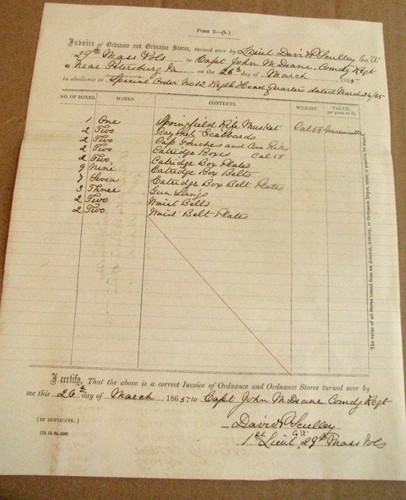 FORM 2—(b.)
Invoice of Ordnance and Ordnance Stores, turned over by Lieut David R Sculley Co "A"
29th Mass Vols to Capt John M Deane Comdg Regt
near Petersburg Va on the 26th day of March 1865
in obedience to Special Order No 12 Regtl Head Quarters dated March 26/65
NO. OF BOXES. MARKS. CONTENTS. WEIGHT. VALUE.
1 One Springfield Rifle Musket Cal 58
2 Two Bayonet Scabbards
2 Two Cap Pouches and Cone Picks
2 Two Catridge Boxes Cal 58
2 Two Catridge Box Plates
9 Nine Catridge Box Belts
7 Seven Catridge Box Belt Plates
3 Three Gun Slings
2 Two Waist Belts
2 Two Waist Belt Plates
The value of all Stores issued from an Arsenal, Armory, or Ordnance Depot,
I certify, That the above is a correct Invoice of Ordnance and Ordnance Stores turned over by
me this 26th day of March 1865 to Capt John M Deane Comdg Regt
David R Sculley
1st Lieut Co "A" 29th Mass Vols
[IN DUPLICATE.]